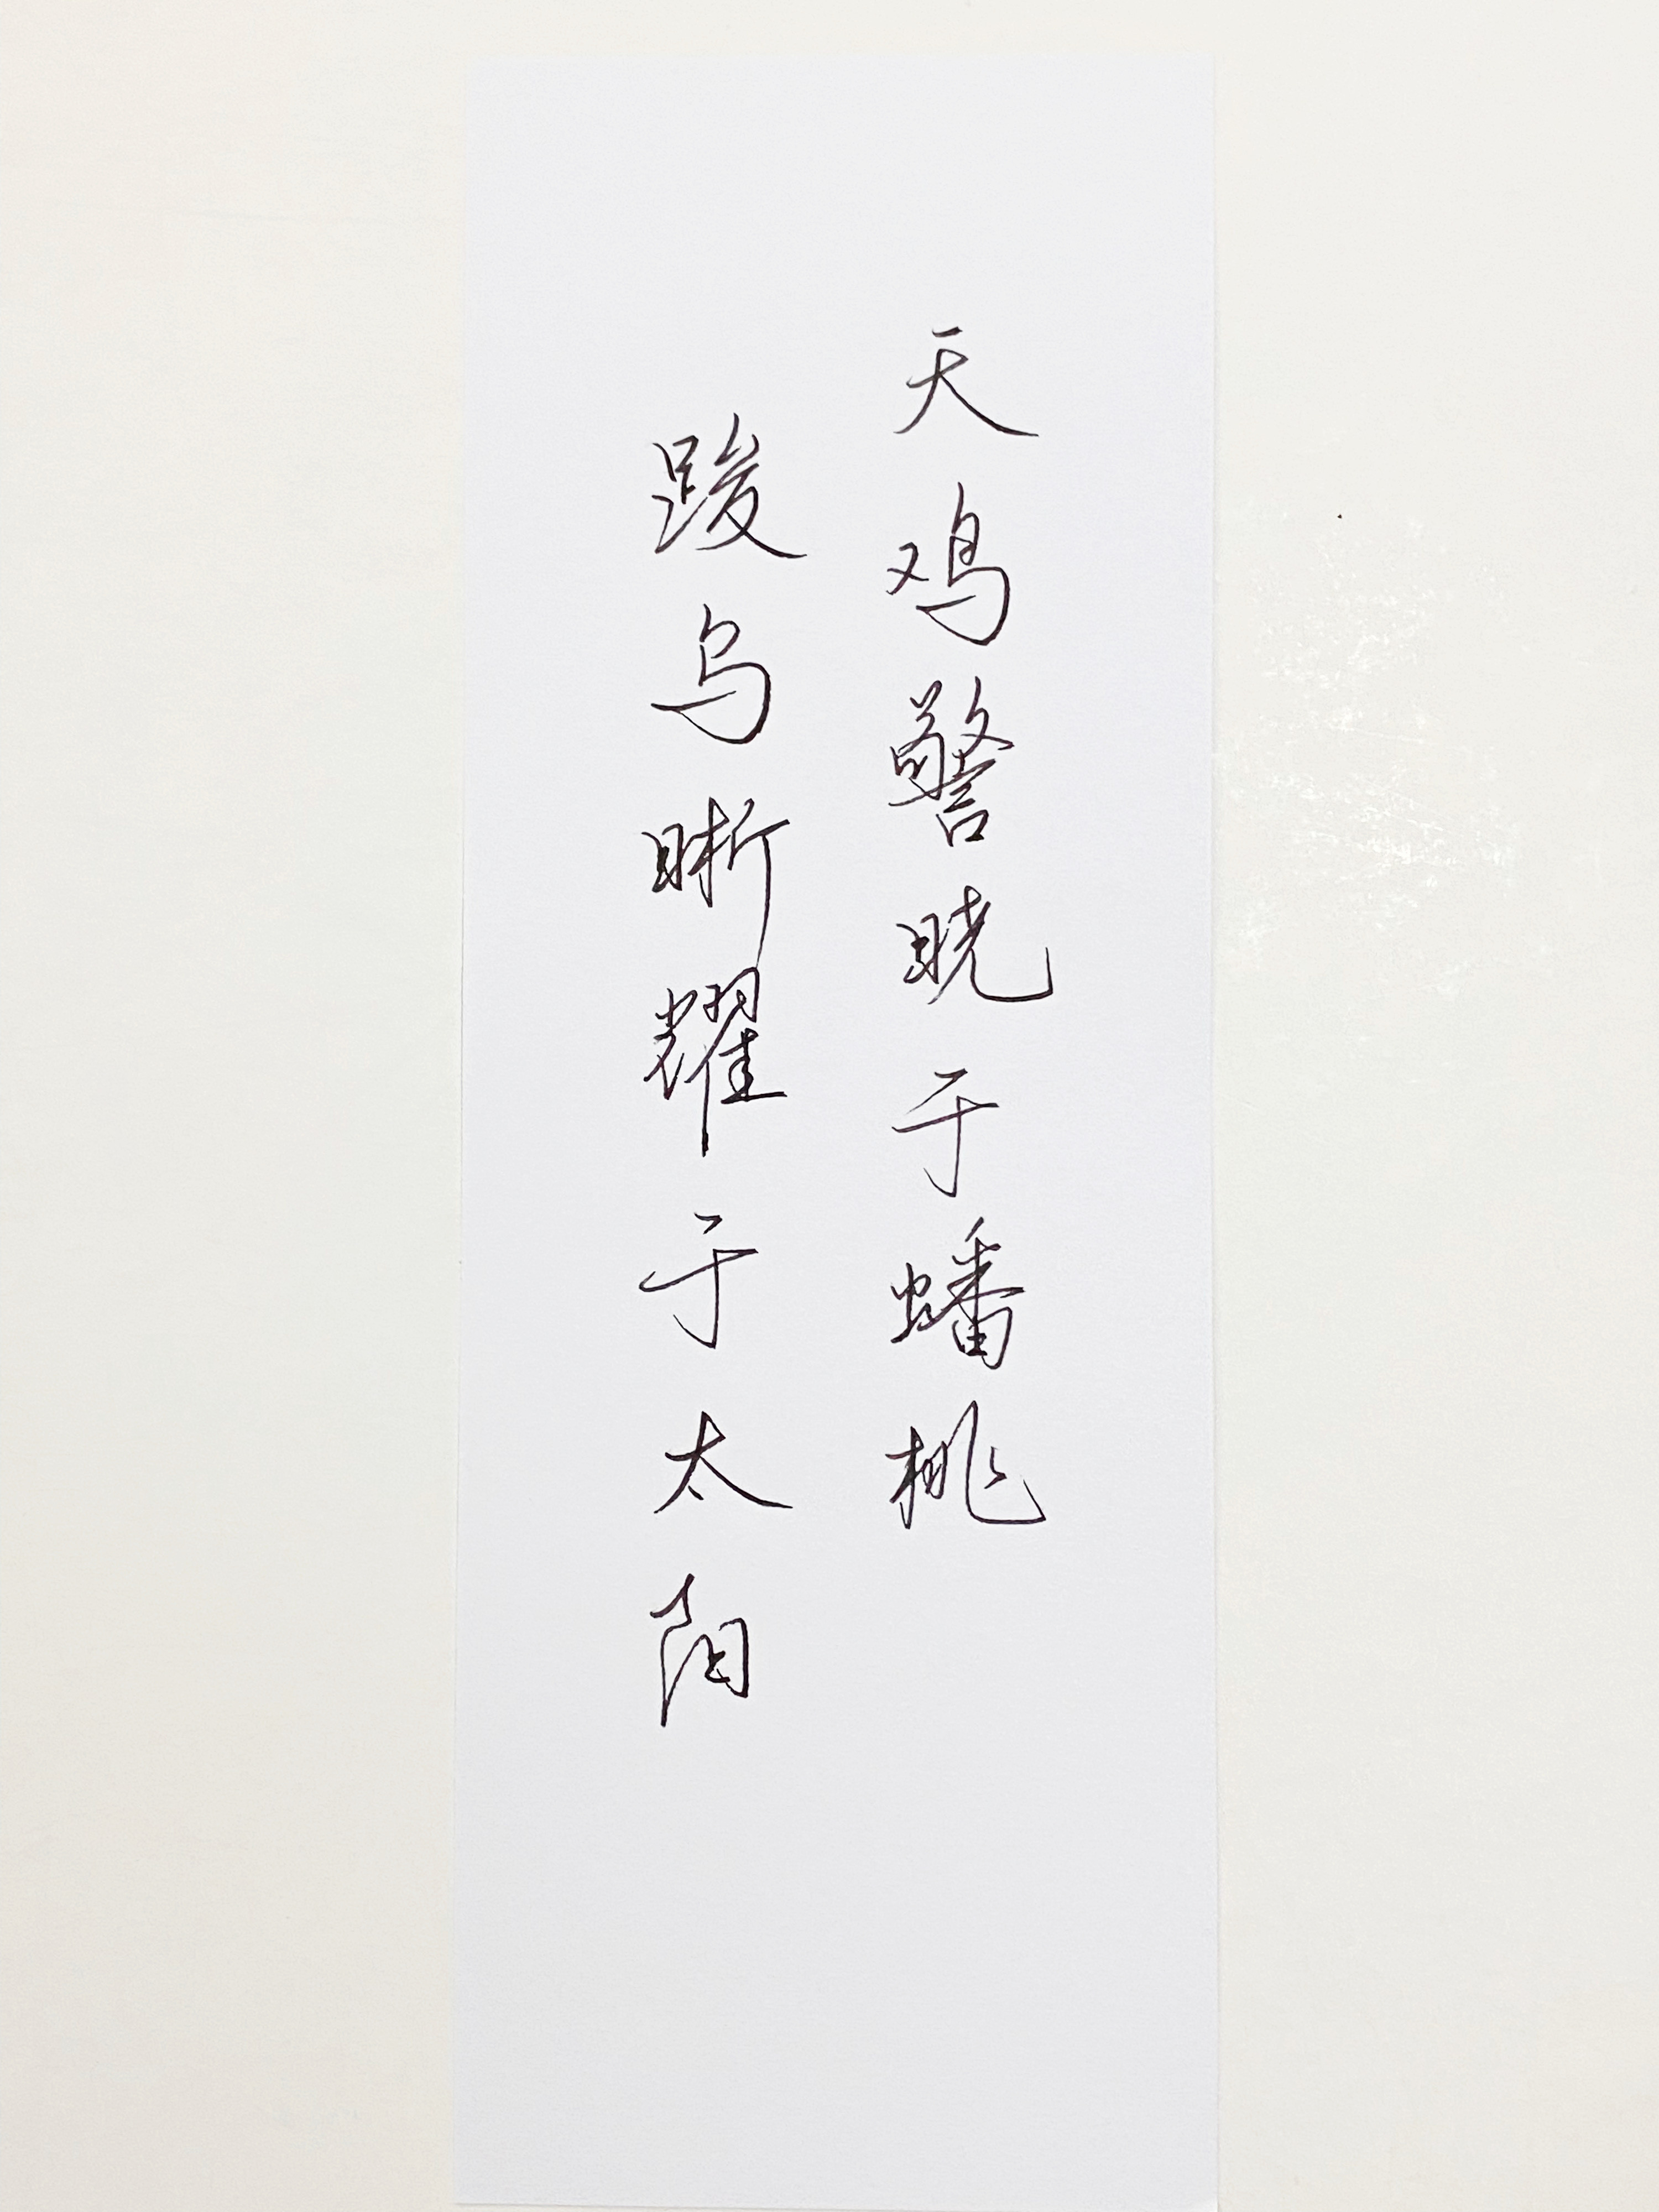 天鸡警晓于蟠桃
踆乌晰耀于太阳